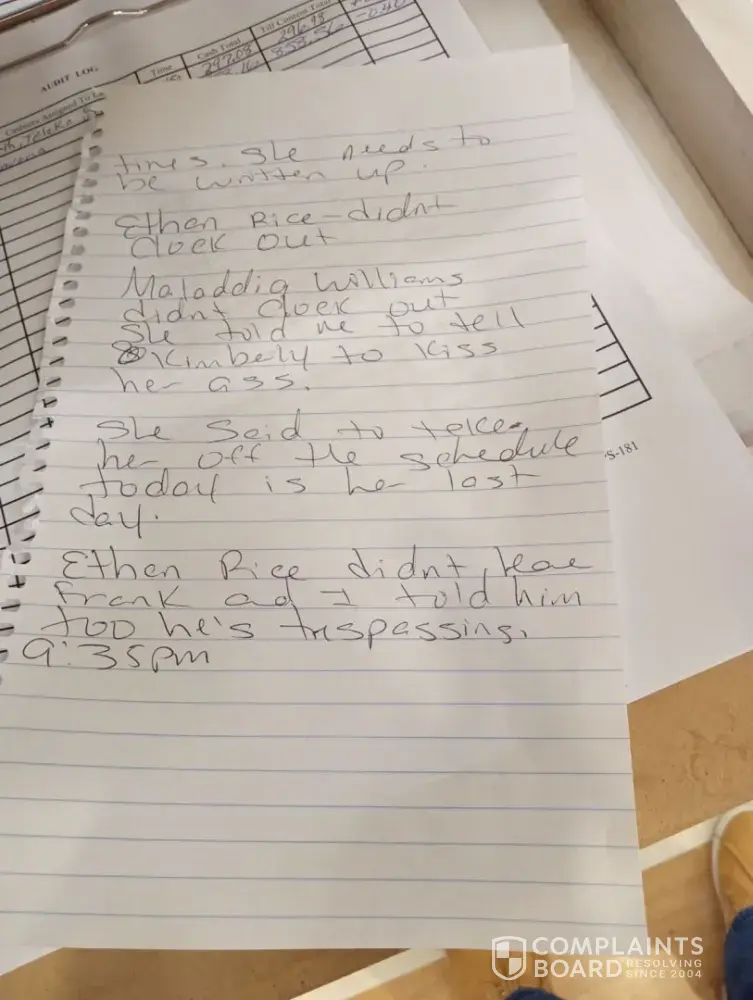 AUDIT LOG
Time
Cash Total
Till Content Total
Cashiers Assigned To
297.08
296.98
858.56
times. She needs to
be written up.
Ethan Rice-didnt
clock out
Maladdig Williams
didnt clock out
She told me to tell
Kimbely to Kiss
her ass.
She said to take
her off the schedule
today is her last
day.
Ethan Rice didnt leave
Frank and I told him
too he's trespassing.
9:35pm
S-181
COMPLAINTS
BOARD RESOLVING
SINCE 2004